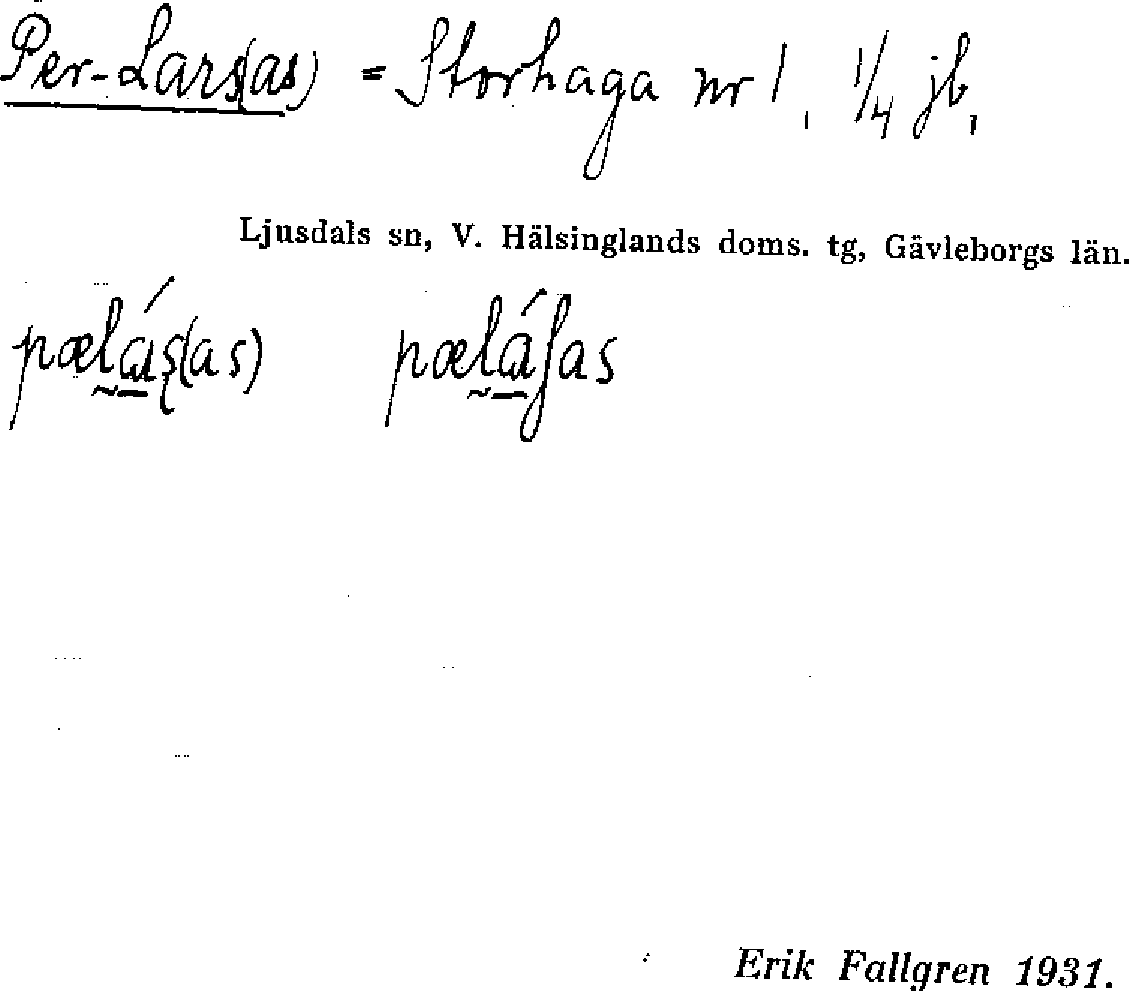 Per-Lars(as) = Storhaga nr 1, 1/4 jb,
Ljusdals sn, V. Hälsinglands doms. tg, Gävleborgs län.
pælás̨(as) pæláʃas
Erik Fallgren 1931.